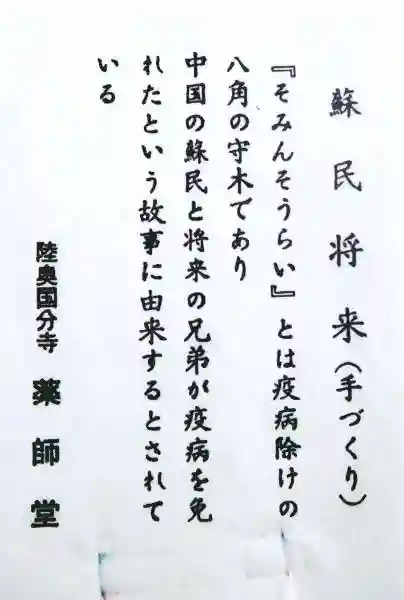 蘇民将来(手づくり)
『そみんそうらい』とは疫病除けの
八角の守木であり
中国の蘇民と将来の兄弟が疫病を免
れたという故事に由来するとされて
いる
陸奥国分寺 薬師堂